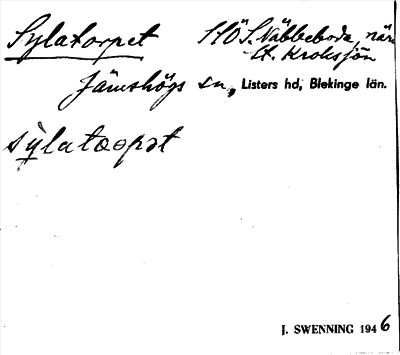 Sylatorpet HÖ S. Näbbeboda, när
St. Kroksjön
Jämshögs sn, Listers hd, Blekinge län.
sỳlatɔopət
J. SWENNING 1946